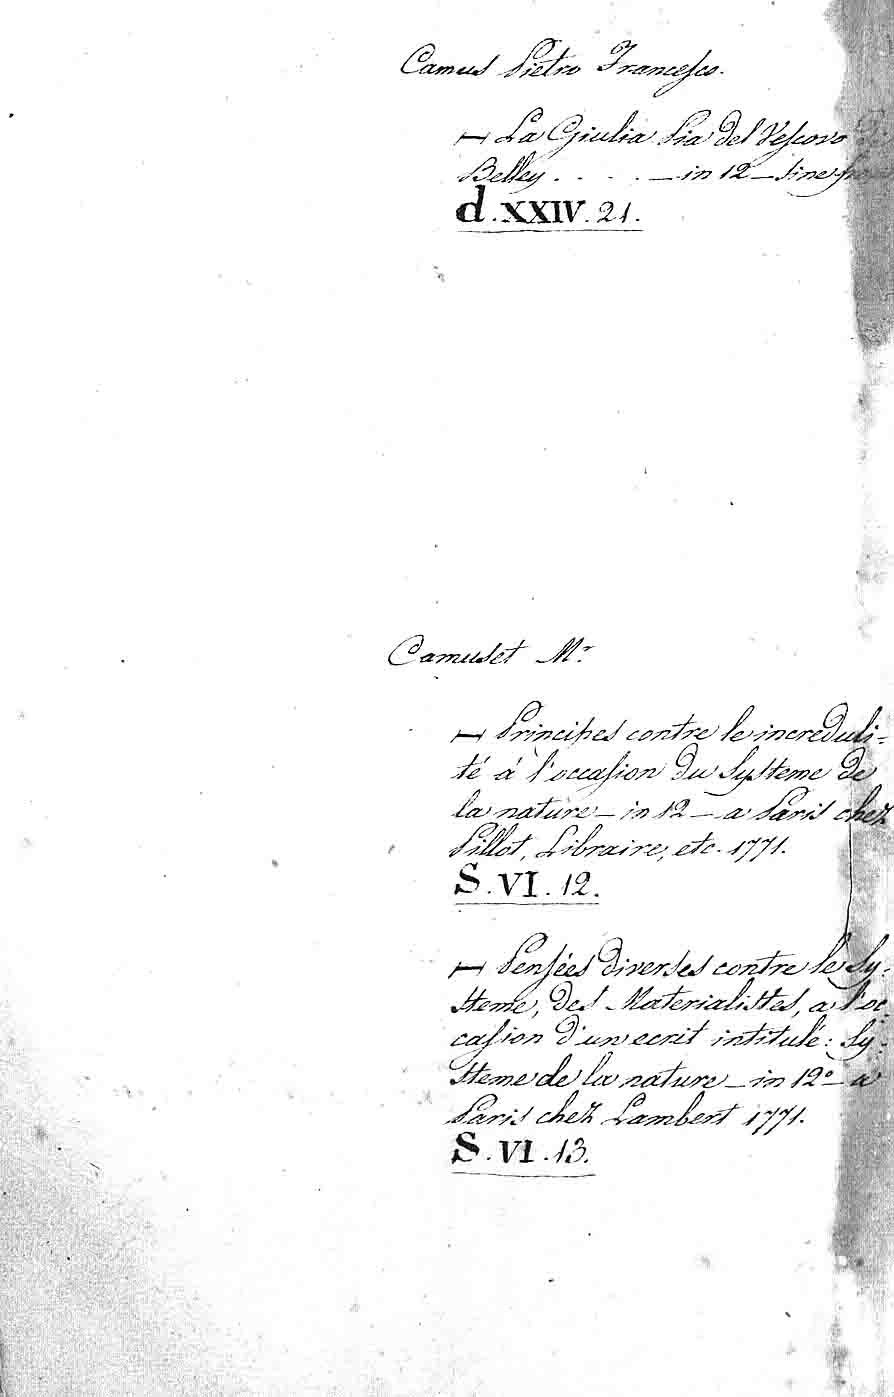 Camus Pietro Francesco.
— La Giulia Pia del Vescovo
Belley . . . . — in 12 — sine
d. XXIV. 21.
Camuset M.r
— Principes contre le increduli=
té á l'occasion du Systeme de
la nature — in 12 — a Paris chez
Pillot, Libraire, etc. 1771.
S. VI. 12.
— Pensées diverses contre le Sy=
steme, des Materialistes, a l'oc
casion d'un ecrit intitulé: Sy=
steme de la nature — in 12º — a
Paris chez Lambert 1771.
S. VI. 13.